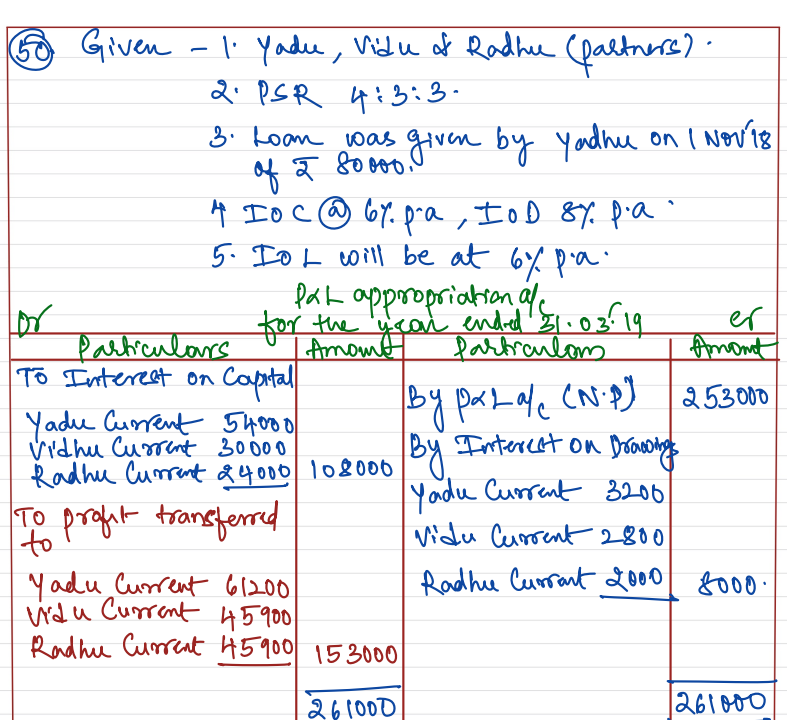 50 Given - 1. Yadu, Vidu & Radhu (partners).
2. PSR 4:3:3.
3. Loan was given by Yadhu on 1 Nov'18
of ₹ 80000.
4 IOC @ 6% p.a, IOD 8% p.a.
5. IOL will be at 6% p.a.
P&L appropriation a/c
Dr for the year ended 31.03.'19 cr
Particulars Amount Particulars Amount
To Interest on Capital
By P&L a/c (N.P) 253000
Yadu Current 54000
Vidhu Current 30000 By Interest on Drawings
Radhu Current 24000 108000
Yadu Current 3200
To profit transferred
to
Vidu Current 2800
Yadu Current 61200 Radhu Current 2000 8000.
Vidu Current 45900
Radhu Current 45900 153000
261000 261000